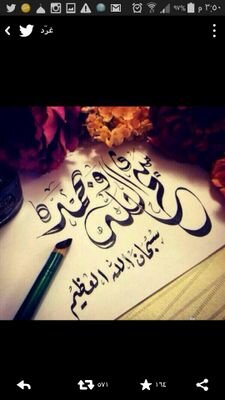 ٩٧% ٣:٥٠ م
غرّد
سبحان الله وبحمده
سبحان الله العظيم
٥٧١ ١٦٤